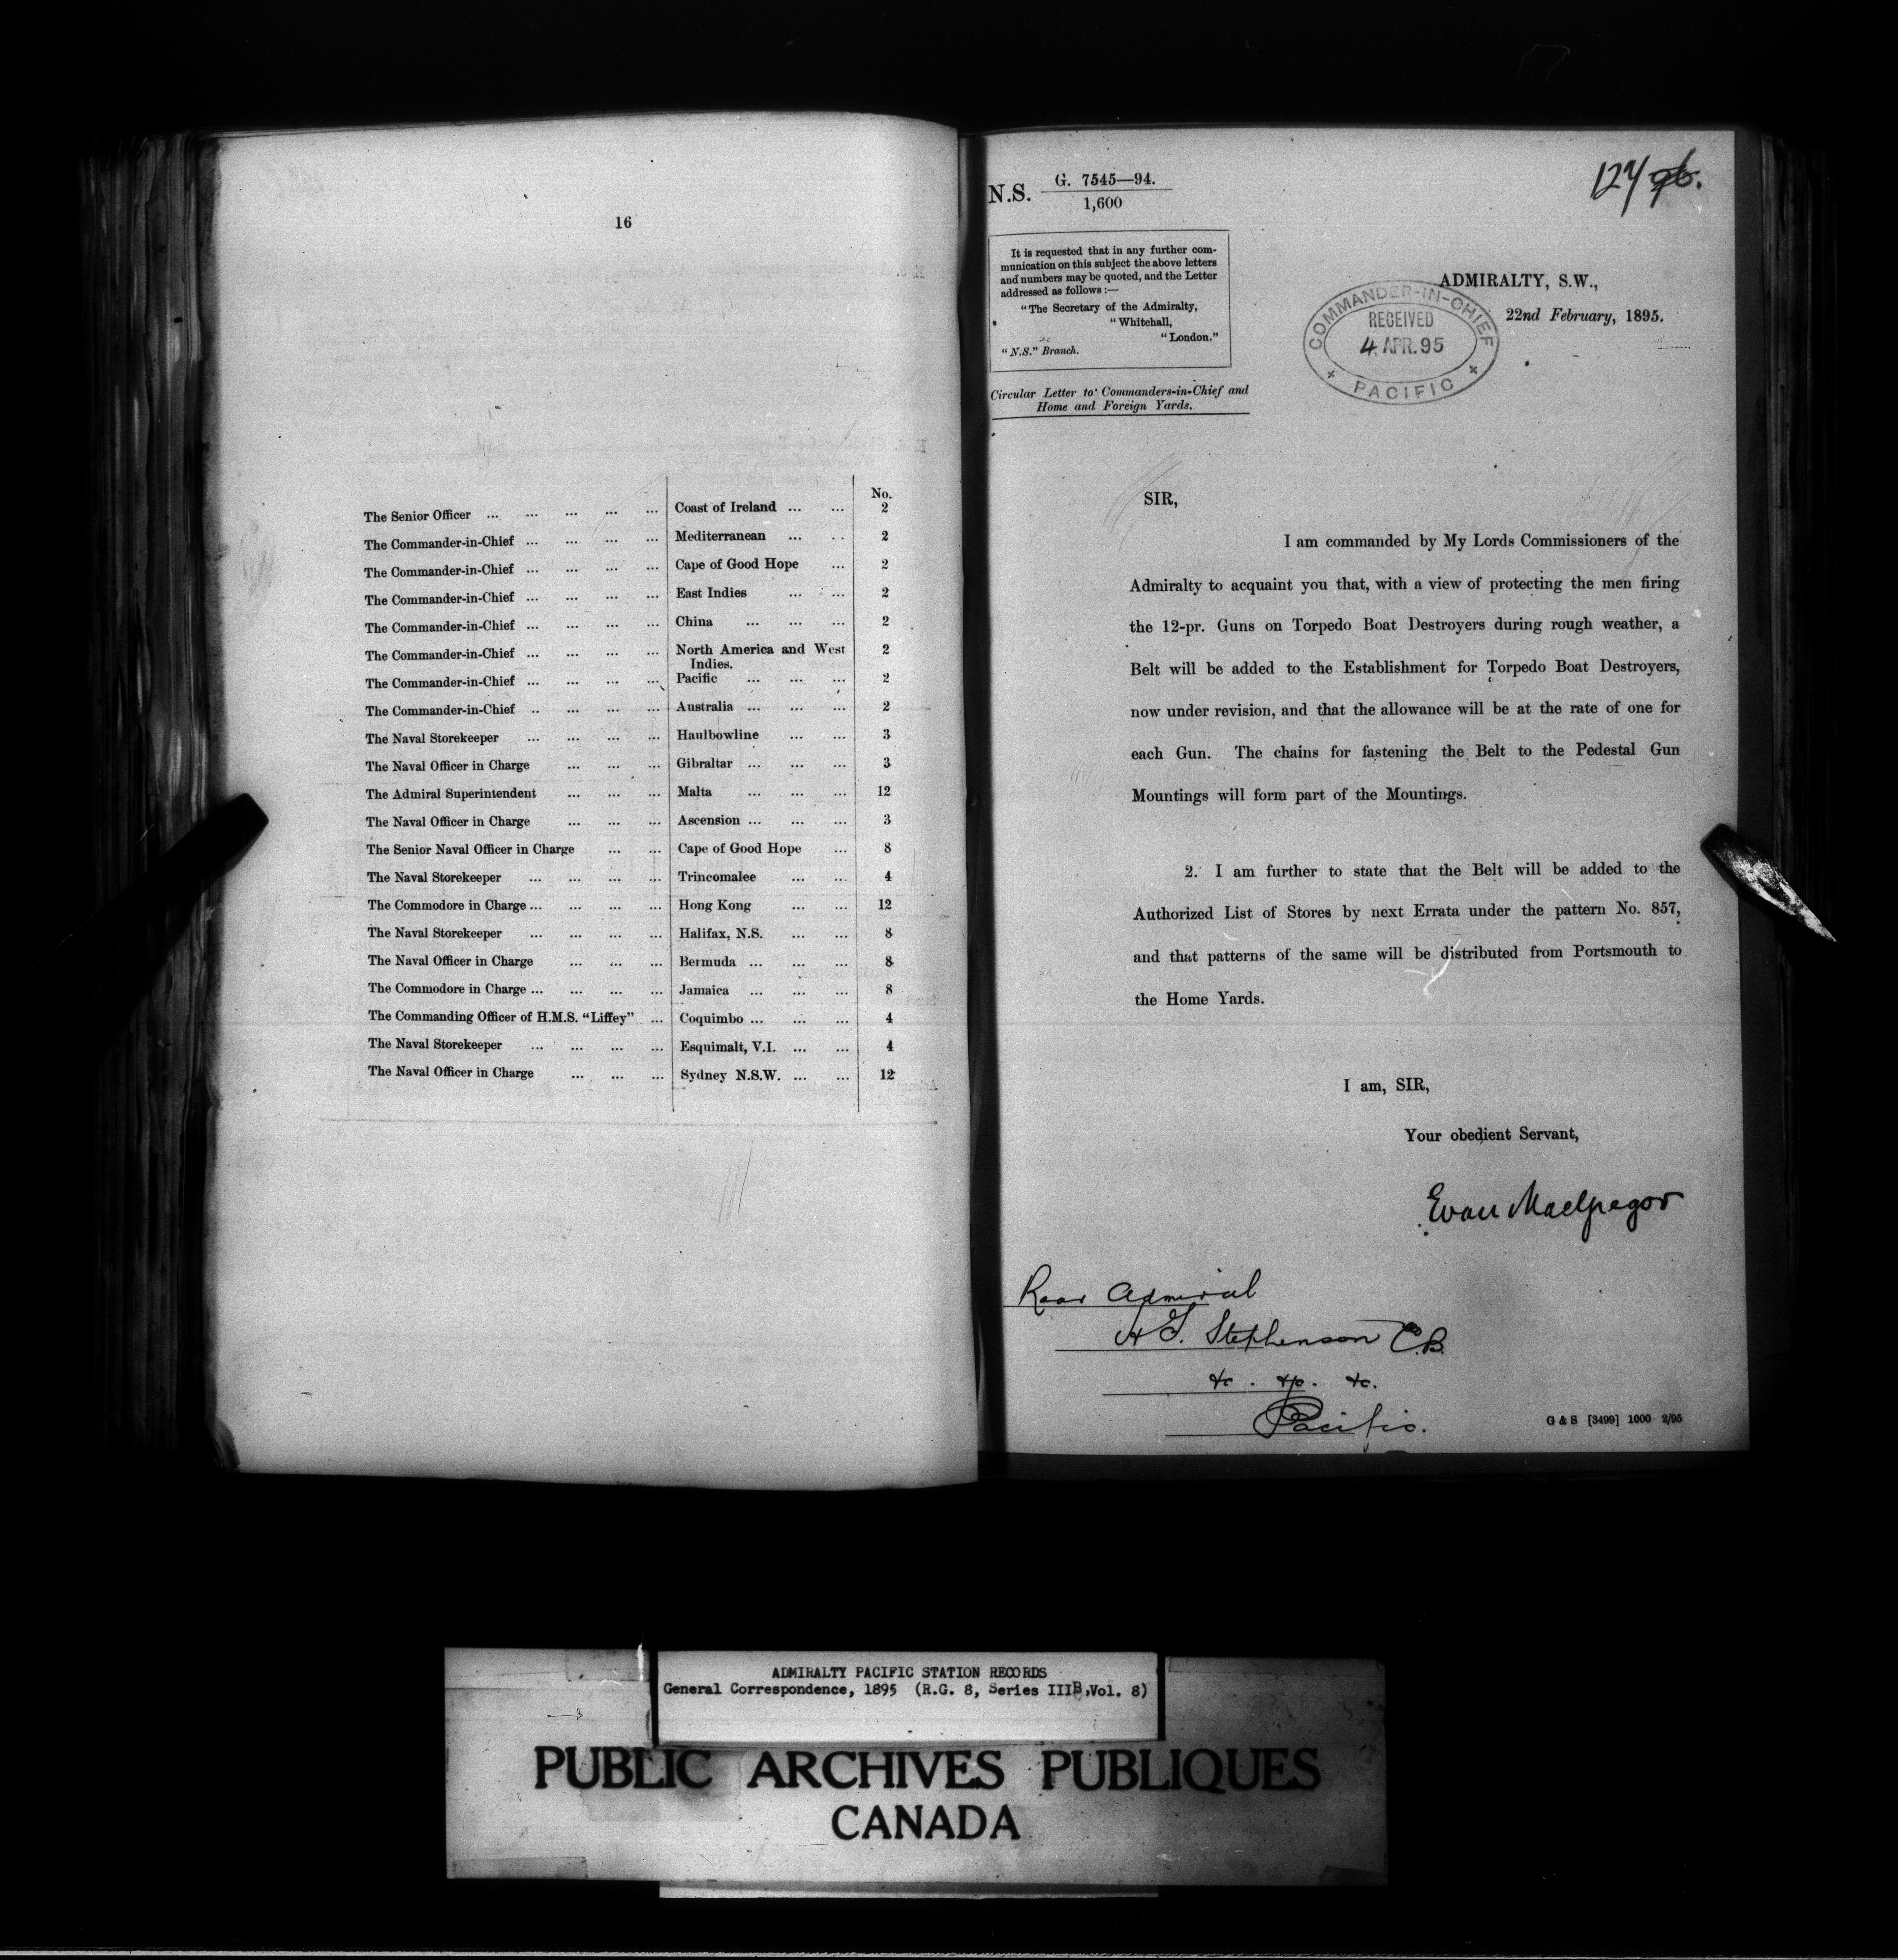 16
No.
The Senior Officer ... ... ... ... ... Coast of Ireland ... ... 2
The Commander-in-Chief ... ... ... ... Mediterranean ... .. 2
The Commander-in-Chief ... ... ... ... Cape of Good Hope ... 2
The Commander-in-Chief ... ... ... ... East Indies ... ... 2
The Commander-in-Chief ... ... ... ... China ... ... ... 2
The Commander-in-Chief ... ... ... ... North America and West Indies. 2
The Commander-in-Chief ... ... ... ... Pacific ... ... ... 2
The Commander-in-Chief .. ... ... ... Australia ... ... ... 2
The Naval Storekeeper ... ... ... ... Haulbowline ... ... 3
The Naval Officer in Charge ... ... ... Gibraltar ... ... ... 3
The Admiral Superintendent ... ... ... Malta ... ... ... 12
The Naval Officer in Charge ... ... ... Ascension ... ... ... 3
The Senior Naval Officer in Charge ... ... Cape of Good Hope ... 8
The Naval Storekeeper ... ... ... ... Trincomalee ... ... 4
The Commodore in Charge ... ... ... ... Hong Kong ... ... 12
The Naval Storekeeper ... ... ... ... Halifax, N.S. ... ... 8
The Naval Officer in Charge ... ... ... Bermuda ... ... ... 8
The Commodore in Charge ... ... ... ... Jamaica ... ... ... 8
The Commanding Officer of H.M.S. "Liffey" ... Coquimbo ... ... ... 4
The Naval Storekeeper ... ... ... ... Esquimalt, V.I. ... ... 4
The Naval Officer in Charge ... ... ... Sydney N.S.W. ... ... 12
N.S. G. 7545—94.
1,600
It is requested that in any further com-
munication on this subject the above letters
and numbers may be quoted, and the Letter
addressed as follows :—
"The Secretary of the Admiralty,
"Whitehall,
"London."
"N.S." Branch.
Circular Letter to Commanders-in-Chief and
Home and Foreign Yards.
ADMIRALTY, S.W.,
22nd February, 1895.
COMMANDER-IN-CHIEF
RECEIVED
4 APR. 95
PACIFIC
SIR,
I am commanded by My Lords Commissioners of the
Admiralty to acquaint you that, with a view of protecting the men firing
the 12-pr. Guns on Torpedo Boat Destroyers during rough weather, a
Belt will be added to the Establishment for Torpedo Boat Destroyers,
now under revision, and that the allowance will be at the rate of one for
each Gun. The chains for fastening the Belt to the Pedestal Gun
Mountings will form part of the Mountings.
2. I am further to state that the Belt will be added to the
Authorized List of Stores by next Errata under the pattern No. 857,
and that patterns of the same will be distributed from Portsmouth to
the Home Yards.
I am, SIR,
Your obedient Servant,
Evan MacGregor
Rear Admiral
H F. Stephenson C.B.
&c. &c. &c.
Pacific.
G & S [3499] 1000 2/95
ADMIRALTY PACIFIC STATION RECORDS
General Correspondence, 1895 (R.G. 8, Series IIIB, Vol. 8)
PUBLIC ARCHIVES PUBLIQUES
CANADA